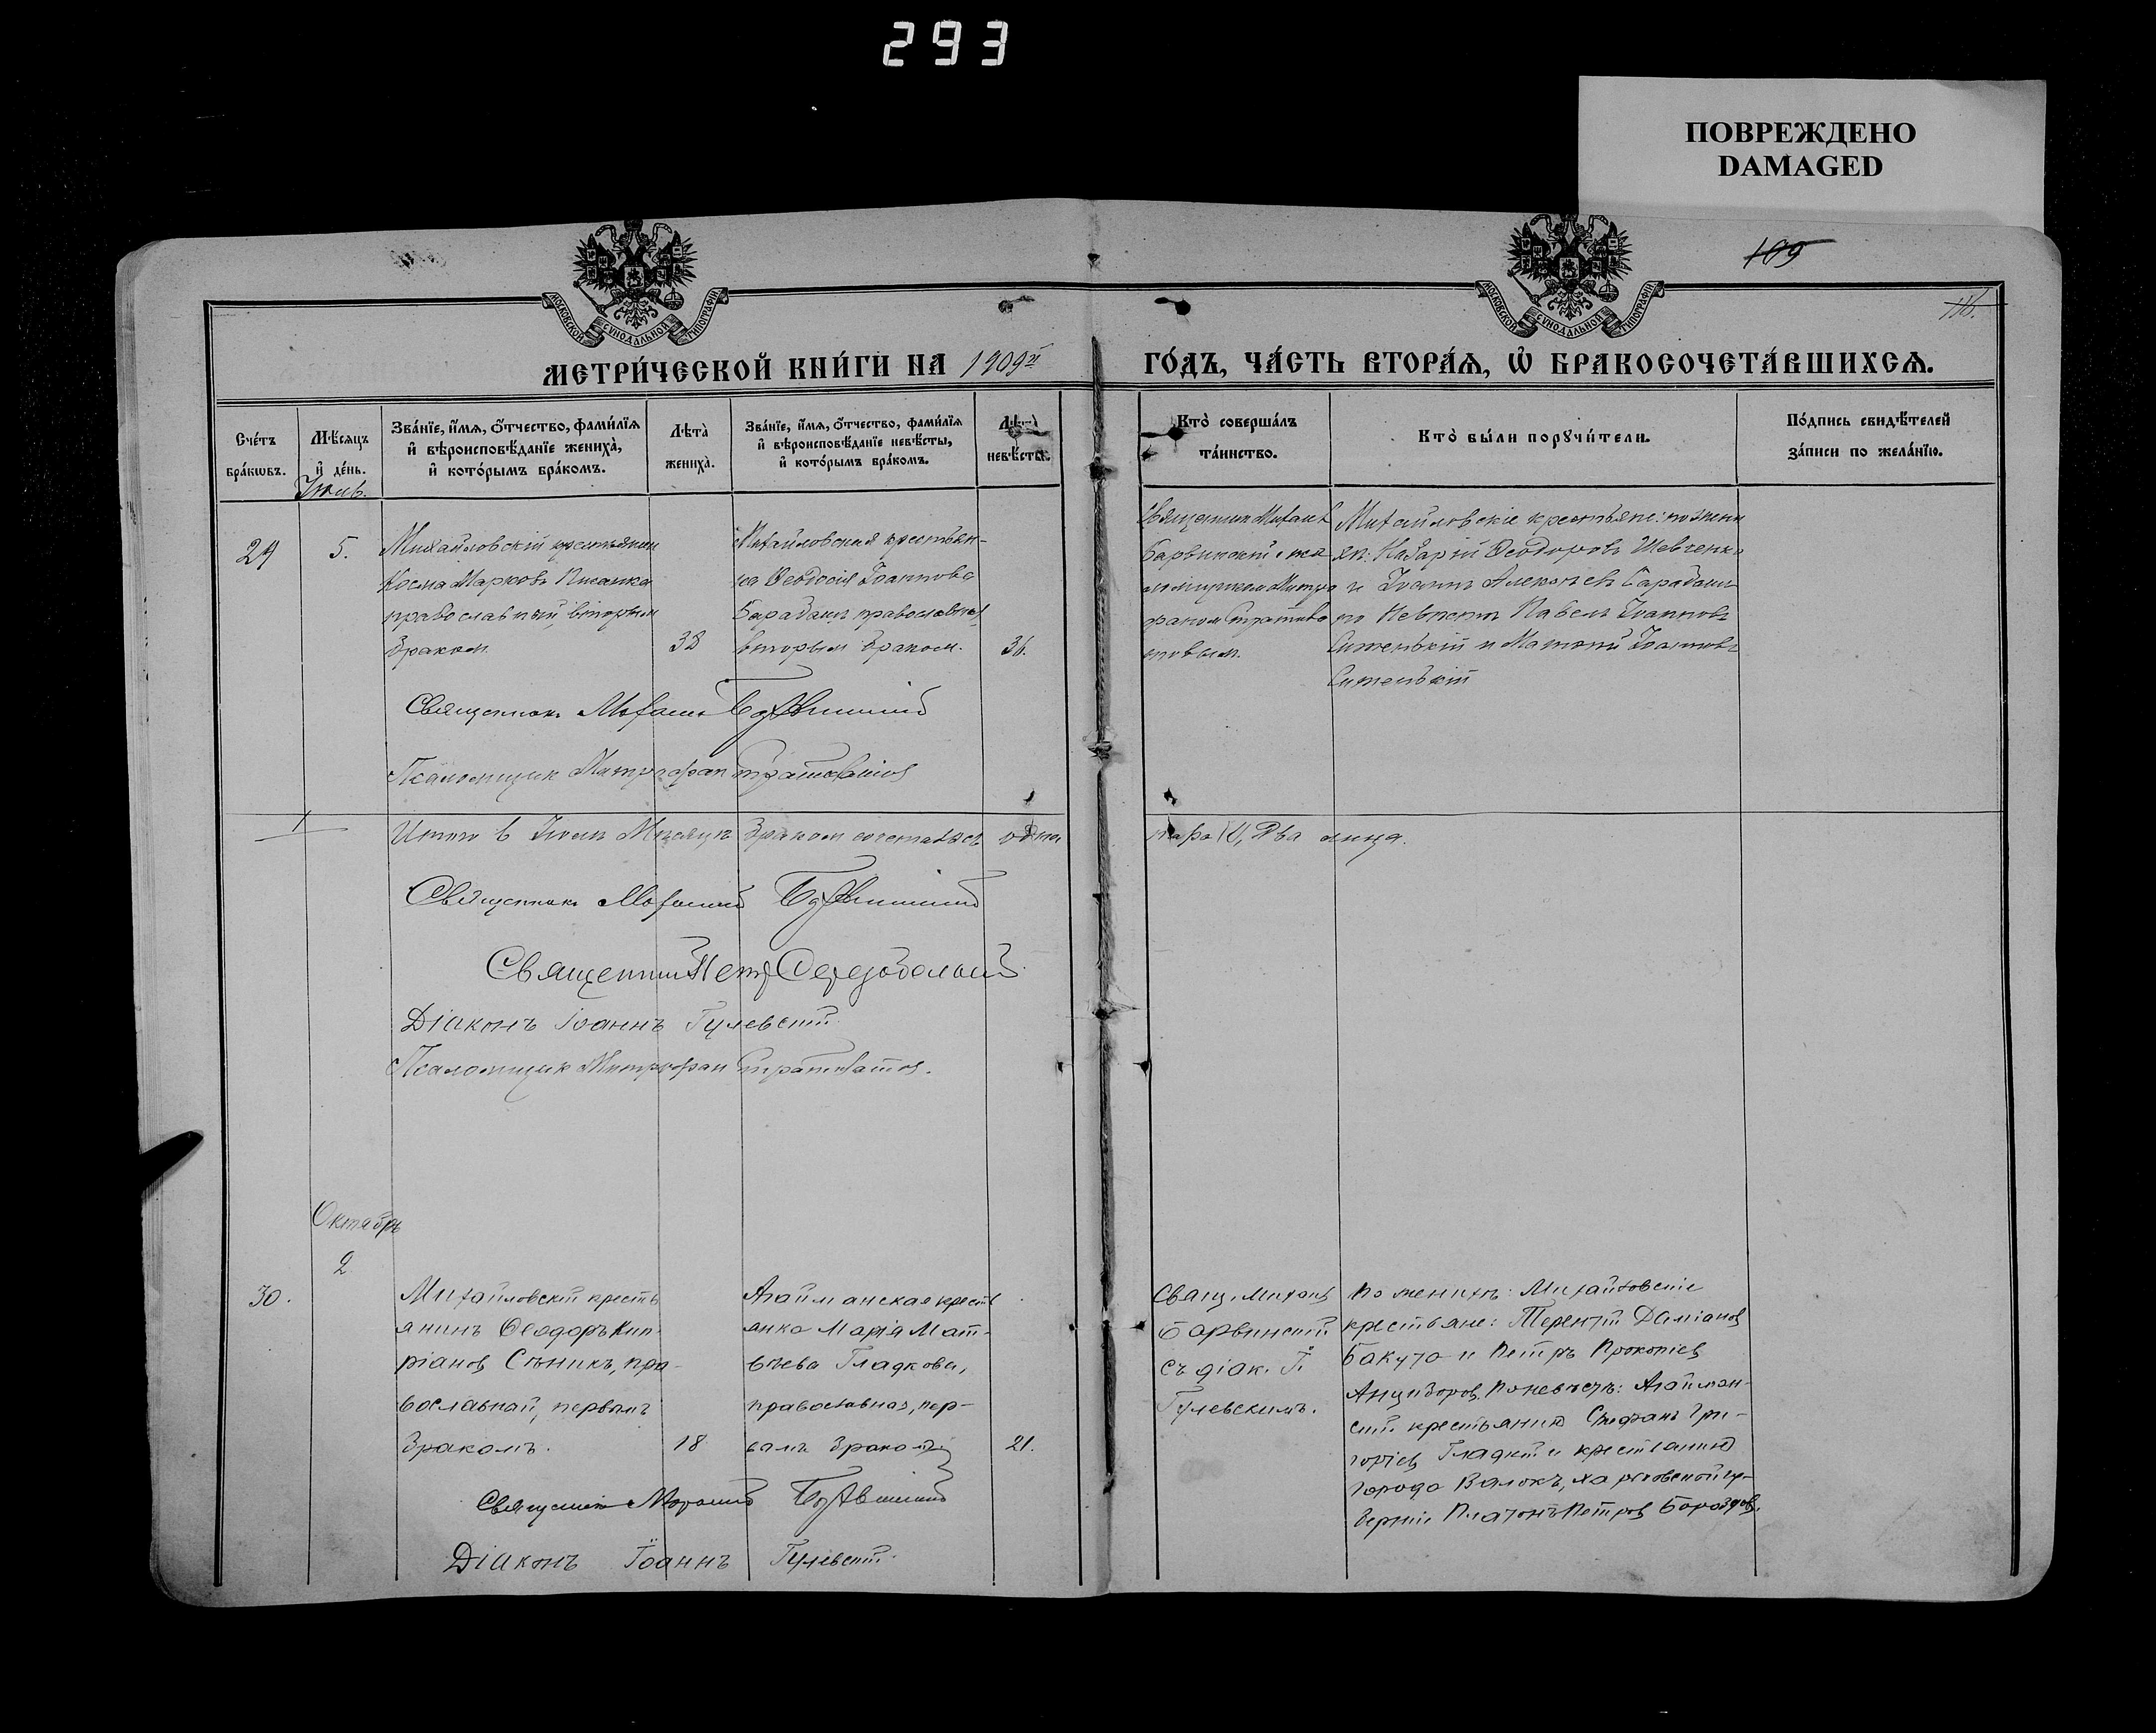 293
ПОВРЕЖДЕНО
DAMAGED
109
116.
МОСКОВСКОЙ СѴНОДАЛЬНОЙ ТИПОГРАФІИ
МОСКОВСКОЙ СѴНОДАЛЬНОЙ ТИПОГРАФІИ
МЕТРИ́ЧЕСКОЙ КНИ́ГИ НА 1909й ГО́ДЪ, ЧА́СТЬ ВТОРА́Я, Ѽ БРАКОСОЧЕТА́ВШИХСЯ.
Сче́тъ бра́кѡвъ.
Мѣ́сяцъ и҆ де́нь.
Зва́нїе, и҆́мя, ѻ҆́тчество, фами́лїя и҆ вѣроисповѣ́данїе жениха̀, и҆ кото́рымъ бра́комъ.
Лѣта̀ жениха̀.
Зва́нїе, и҆́мя, ѻ҆́тчество, фами́лїя и҆ вѣроисповѣ́данїе невѣ́сты, и҆ кото́рымъ бра́комъ.
Лѣта̀ невѣ́сты.
Кто̀ соверша́лъ та́инство.
Кто̀ бы́ли порꙋчи́тели.
По́дпись свидѣ́телей за́писи по жела́нїю.
29
5.
Михайловскій крестьянин
Косма Марковъ Писанка
православный, вторым
браком.
38
Михайловская крестьян-
ка Феодосія Іоаннова
Барабаш православная,
вторым браком.
36.
Священник Михаил
Барвинскій с пса
ломщиком Митро
фаном
Михайловскіе крестьяне: по жени
хѣ: Назарій Феодоровъ Шевченко
и Іоаннъ Алексѣевъ Барабаш
по невѣстѣ Павелъ Іоанновъ
и Матѳій Іоанновъ
Священник Михаил Барвинскій
Псаломщик Митрофан
1
Итого в Іюлѣ Мѣсяцѣ браком сочеталась одна
пара, два лица.
Священник Михаил Барвинскій
Священник Петр
Діаконъ Іоаннъ Гулевскій
Псаломщик Митрофан
Октябрь
2
30.
Михайловскій кресть
янинъ Ѳеодоръ Кип-
ріанов Сѣникъ, пра-
вославный, первымъ
бракомъ.
18
Агайманская кресть
янка Марія Мат-
вѣева Гладкова,
православная, пер-
вымъ бракомъ
21.
Свящ. Михаил
Барвинскій
съ діак. І.
Гулевскимъ.
По женихѣ: Михайловскіе
крестьяне: Терентій Даміанов
Бакута и Петръ Прокопіев
По невѣстѣ: Агайман-
скій крестьянинъ Стефанъ Гри-
горіев Гладкій и крестьянинъ
города Валокъ, Харьковской гу-
берніи Платонъ Петров Бороздов.
Священник Михаил Барвинскій
Діаконъ Іоаннъ Гулевскій